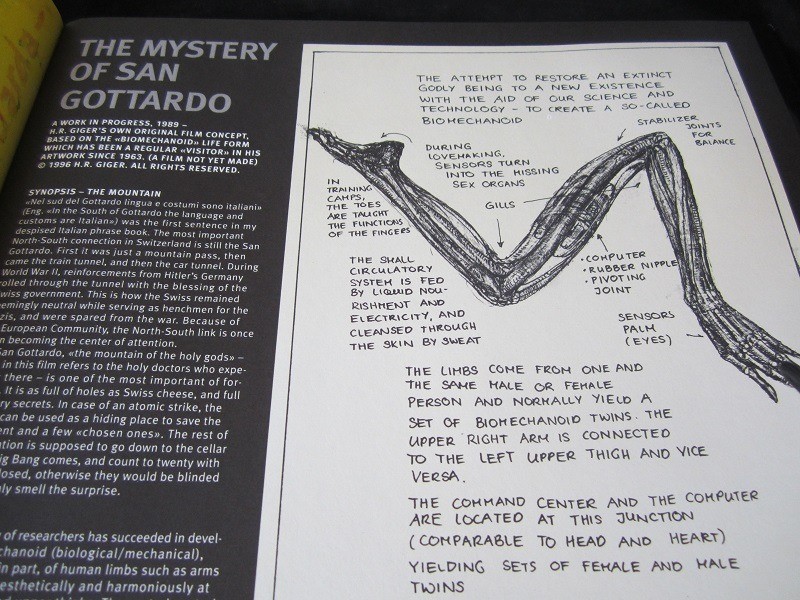 THE MYSTERY
OF SAN
GOTTARDO
A WORK IN PROGRESS, 1989 –
H.R. GIGER'S OWN ORIGINAL FILM CONCEPT,
BASED ON THE «BIOMECHANOID» LIFE FORM
WHICH HAS BEEN A REGULAR «VISITOR» IN HIS
ARTWORK SINCE 1963. (A FILM NOT YET MADE)
© 1996 H.R. GIGER. ALL RIGHTS RESERVED.
SYNOPSIS – THE MOUNTAIN
«Nel sud del Gottardo lingua e costumi sono italiani»
(Eng. «In the South of Gottardo the language and
customs are Italian») was the first sentence in my
despised Italian phrase book. The most important
North-South connection in Switzerland is still the San
Gottardo. First it was just a mountain pass, then
came the train tunnel, and then the car tunnel. During
World War II, reinforcements from Hitler's Germany
rolled through the tunnel with the blessing of the
wiss government. This is how the Swiss remained
eemingly neutral while serving as henchmen for the
zis, and were spared from the war. Because of
European Community, the North-South link is once
n becoming the center of attention.
San Gottardo, «the mountain of the holy gods» –
in this film refers to the holy doctors who expe-
there – is one of the most important of for-
. It is as full of holes as Swiss cheese, and full
ry secrets. In case of an atomic strike, the
can be used as a hiding place to save the
ent and a few «chosen ones». The rest of
ation is supposed to go down to the cellar
ig Bang comes, and count to twenty with
losed, otherwise they would be blinded
ly smell the surprise.
y of researchers has succeeded in devel-
chanoid (biological/mechanical),
in part, of human limbs such as arms
esthetically and harmoniously at
THE ATTEMPT TO RESTORE AN EXTINCT
GODLY BEING TO A NEW EXISTENCE
WITH THE AID OF OUR SCIENCE AND
TECHNOLOGY – TO CREATE A SO-CALLED
BIOMECHANOID
STABILIZER
JOINTS
FOR
BALANCE
DURING
LOVEMAKING,
SENSORS TURN
INTO THE MISSING
SEX ORGANS
IN
TRAINING
CAMPS,
THE TOES
ARE TAUGHT
THE FUNCTIONS
OF THE FINGERS
GILLS
THE SMALL
CIRCULATORY
SYSTEM IS FED
BY LIQUID NOU-
RISHMENT AND
ELECTRICITY, AND
CLEANSED THROUGH
THE SKIN BY SWEAT
• COMPUTER
• RUBBER NIPPLE
• PIVOTING
JOINT
SENSORS
PALM
(EYES)
THE LIMBS COME FROM ONE AND
THE SAME MALE OR FEMALE
PERSON AND NORMALLY YIELD A
SET OF BIOMECHANOID TWINS. THE
UPPER RIGHT ARM IS CONNECTED
TO THE LEFT UPPER THIGH AND VICE
VERSA.
THE COMMAND CENTER AND THE COMPUTER
ARE LOCATED AT THIS JUNCTION
(COMPARABLE TO HEAD AND HEART)
YIELDING SETS OF FEMALE AND MALE
TWINS